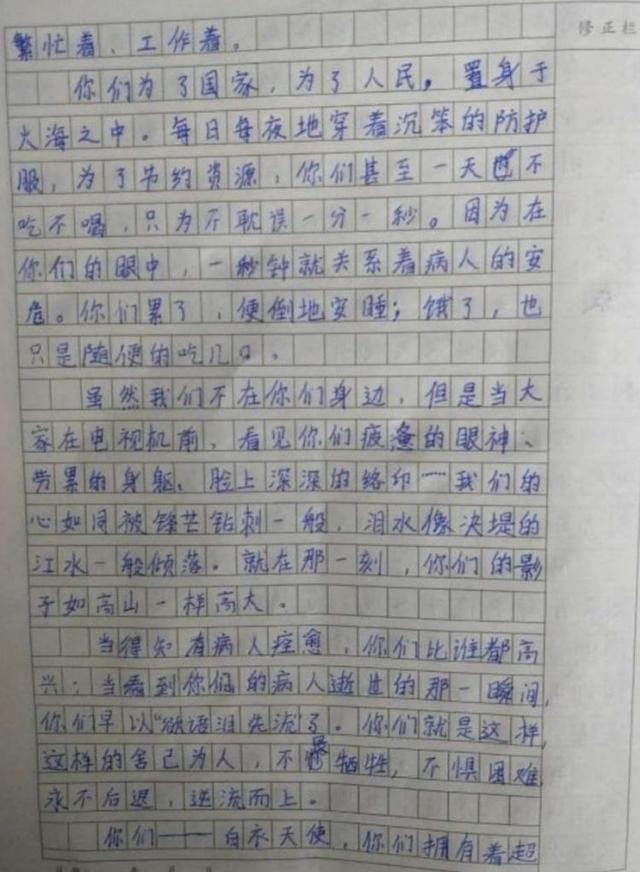 修正栏
繁忙着、工作着。
你们为了国家，为了人民，置身于
火海之中。每日每夜地穿着沉笨的防护
服，为了节约资源，你们甚至一天不
吃不喝，只为不耽误一分一秒。因为在
你们的眼中，一秒钟就关系着病人的安
危。你们累了，便倒地安睡；饿了，也
只是随便的吃几口。
虽然我们不在你们身边，但是当大
家在电视机前，看见你们疲惫的眼神、
劳累的身躯、脸上深深的络印……我们的
心如同被锋芒钻刺一般，泪水像决堤的
江水一般倾落。就在那一刻，你们的影
子如高山一样高大。
当得知有病人痊愈，你们比谁都高
兴；当看到你们的病人逝世的那一瞬间，
你们早以“欲语泪先流”了。你们就是这样，
这样的舍己为人，不畏牺牲，不惧困难，
永不后退，逆流而上。
你们——白衣天使，你们拥有着超